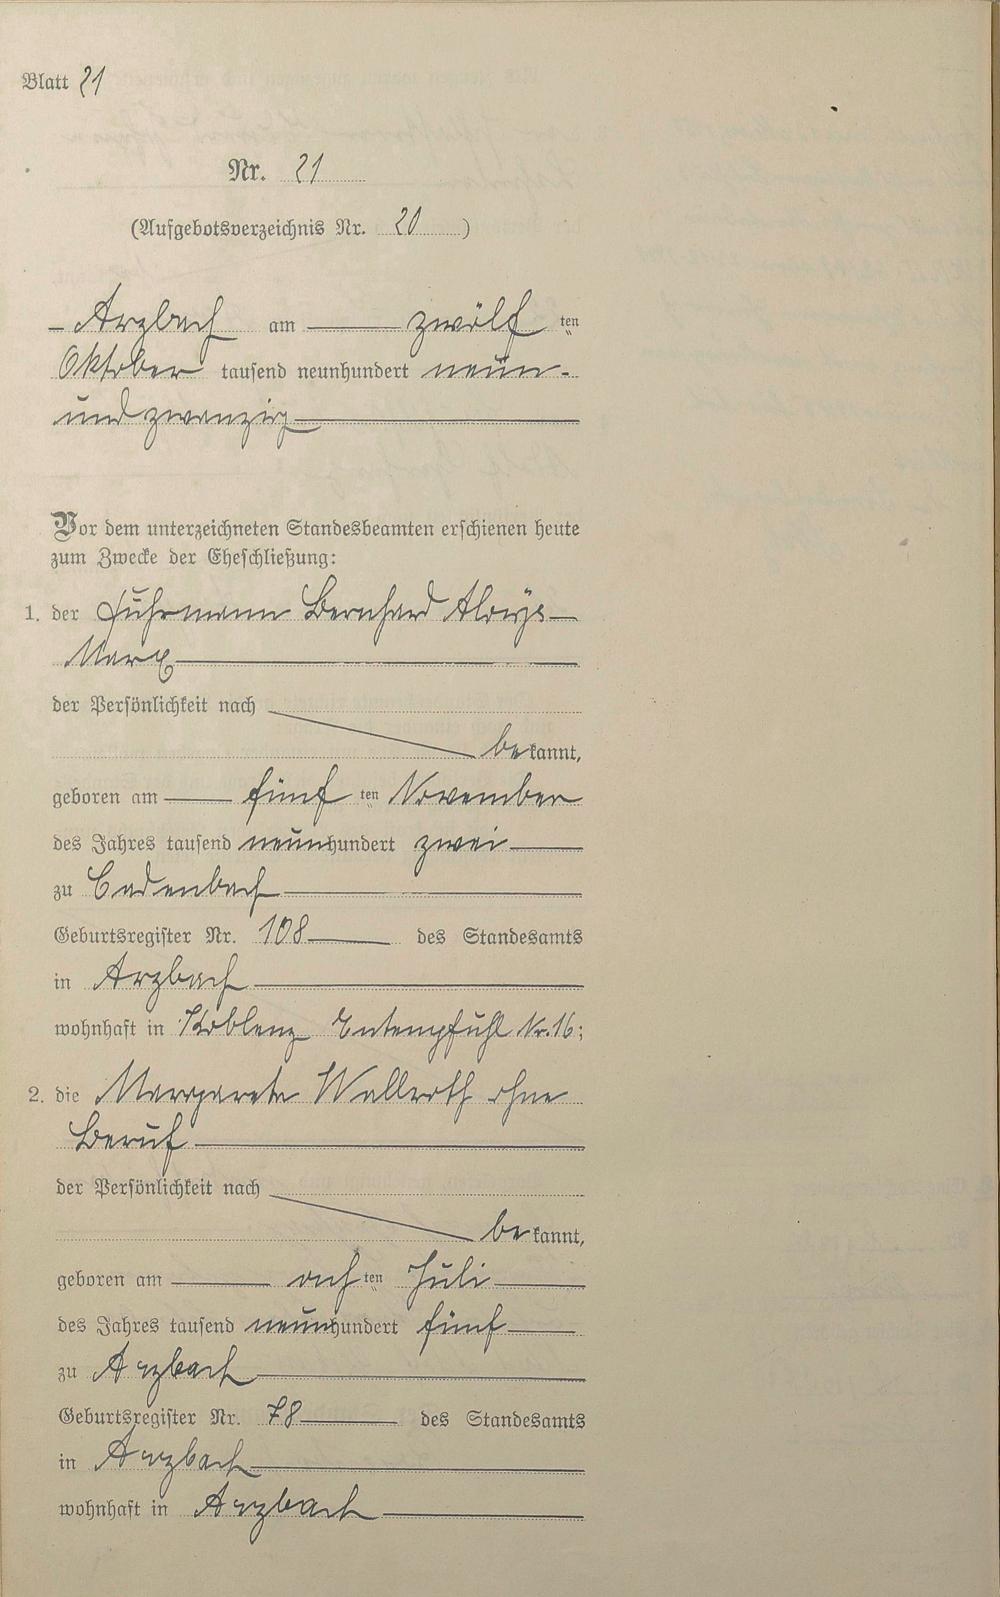 Blatt 21
Nr. 21
(Aufgebotsverzeichnis Nr. 20 )
Arzbach am zwölf ten
Oktober tausend neunhundert neun-
und zwanzig
Vor dem unterzeichneten Standesbeamten erschienen heute
zum Zwecke der Eheschließung:
1. der Fuhrmann Bernhard Aloys
Marx
der Persönlichkeit nach
be kannt,
geboren am fünf ten November
des Jahres tausend neunhundert zwei
zu Cadenbach
Geburtsregister Nr. 108 des Standesamts
in Arzbach
wohnhaft in Koblenz Entenpfuhl Nr. 16;
2. die Margareta Wallroth ohne
Beruf
der Persönlichkeit nach
be kannt,
geboren am ach ten Juli
des Jahres tausend neunhundert fünf
zu Arzbach
Geburtsregister Nr. 78 des Standesamts
in Arzbach
wohnhaft in Arzbach